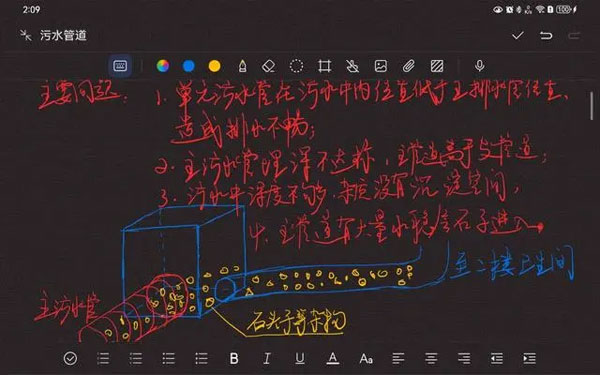 2:09
100
污水管道
主要问题: 1. 单元污水管在污水中内位置低于主排水管位置,
造成排水不畅;
2. 主污水管埋深不达标, 主管道高于支管道;
3. 污水中深度不够, 杂质没有沉淀空间,
4. 主管道有大量水稳层石子进入
至二楼卫生间
主污水管
石头子等杂物
B I U A Aa